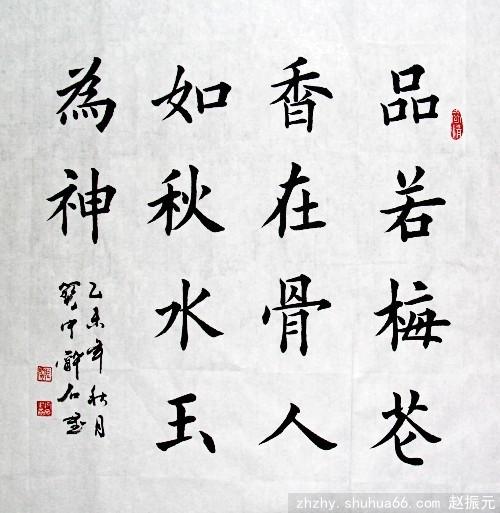 品若梅花
香在骨人
如秋水玉
為神
乙未年秋月
中醉石書
zhzhy.shuhua66.com 赵振元